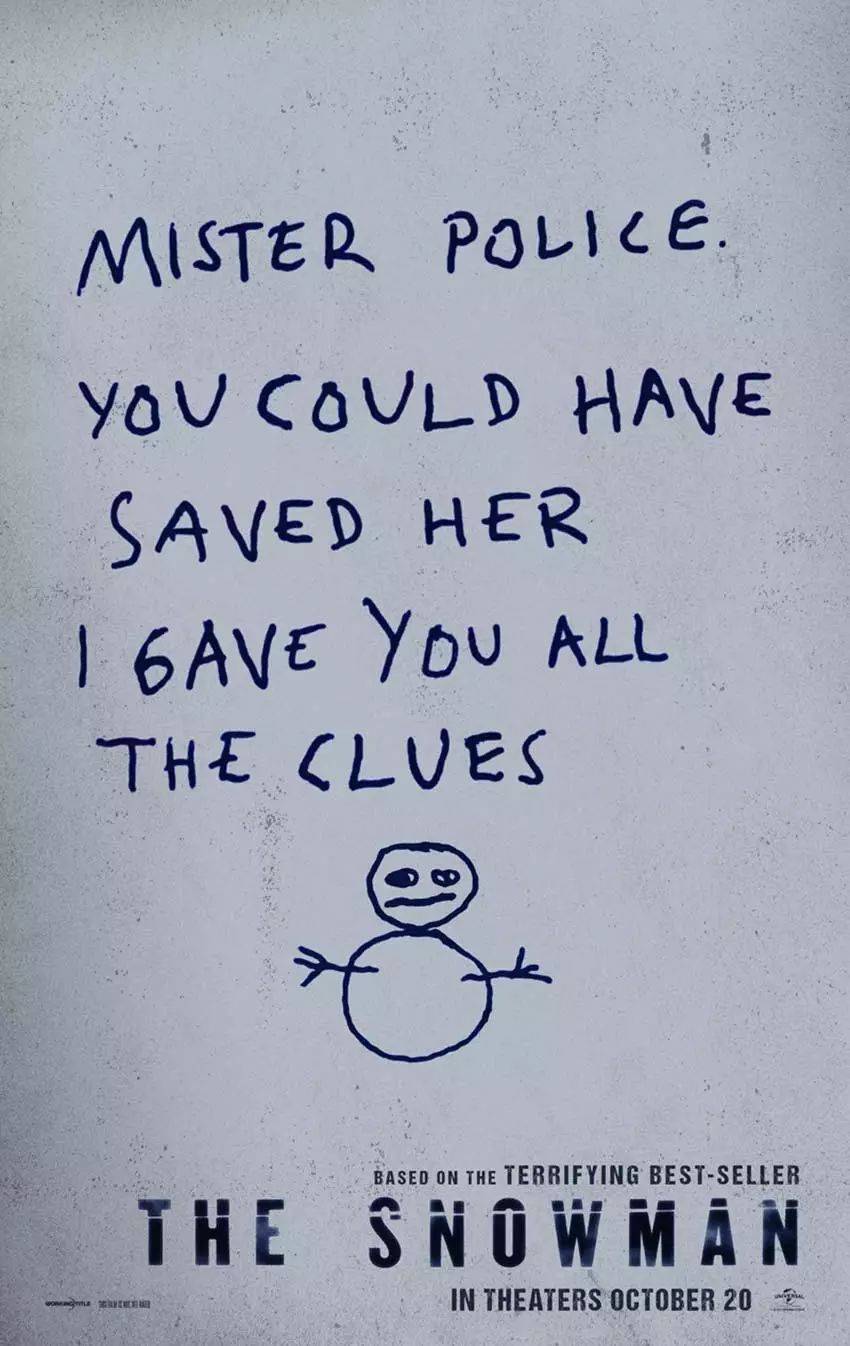 MISTER POLICE.
YOU COULD HAVE
SAVED HER
I GAVE YOU ALL
THE CLUES
BASED ON THE TERRIFYING BEST-SELLER
THE SNOWMAN
IN THEATERS OCTOBER 20
WORKING TITLE THIS FILM IS NOT YET RATED UNIVERSAL